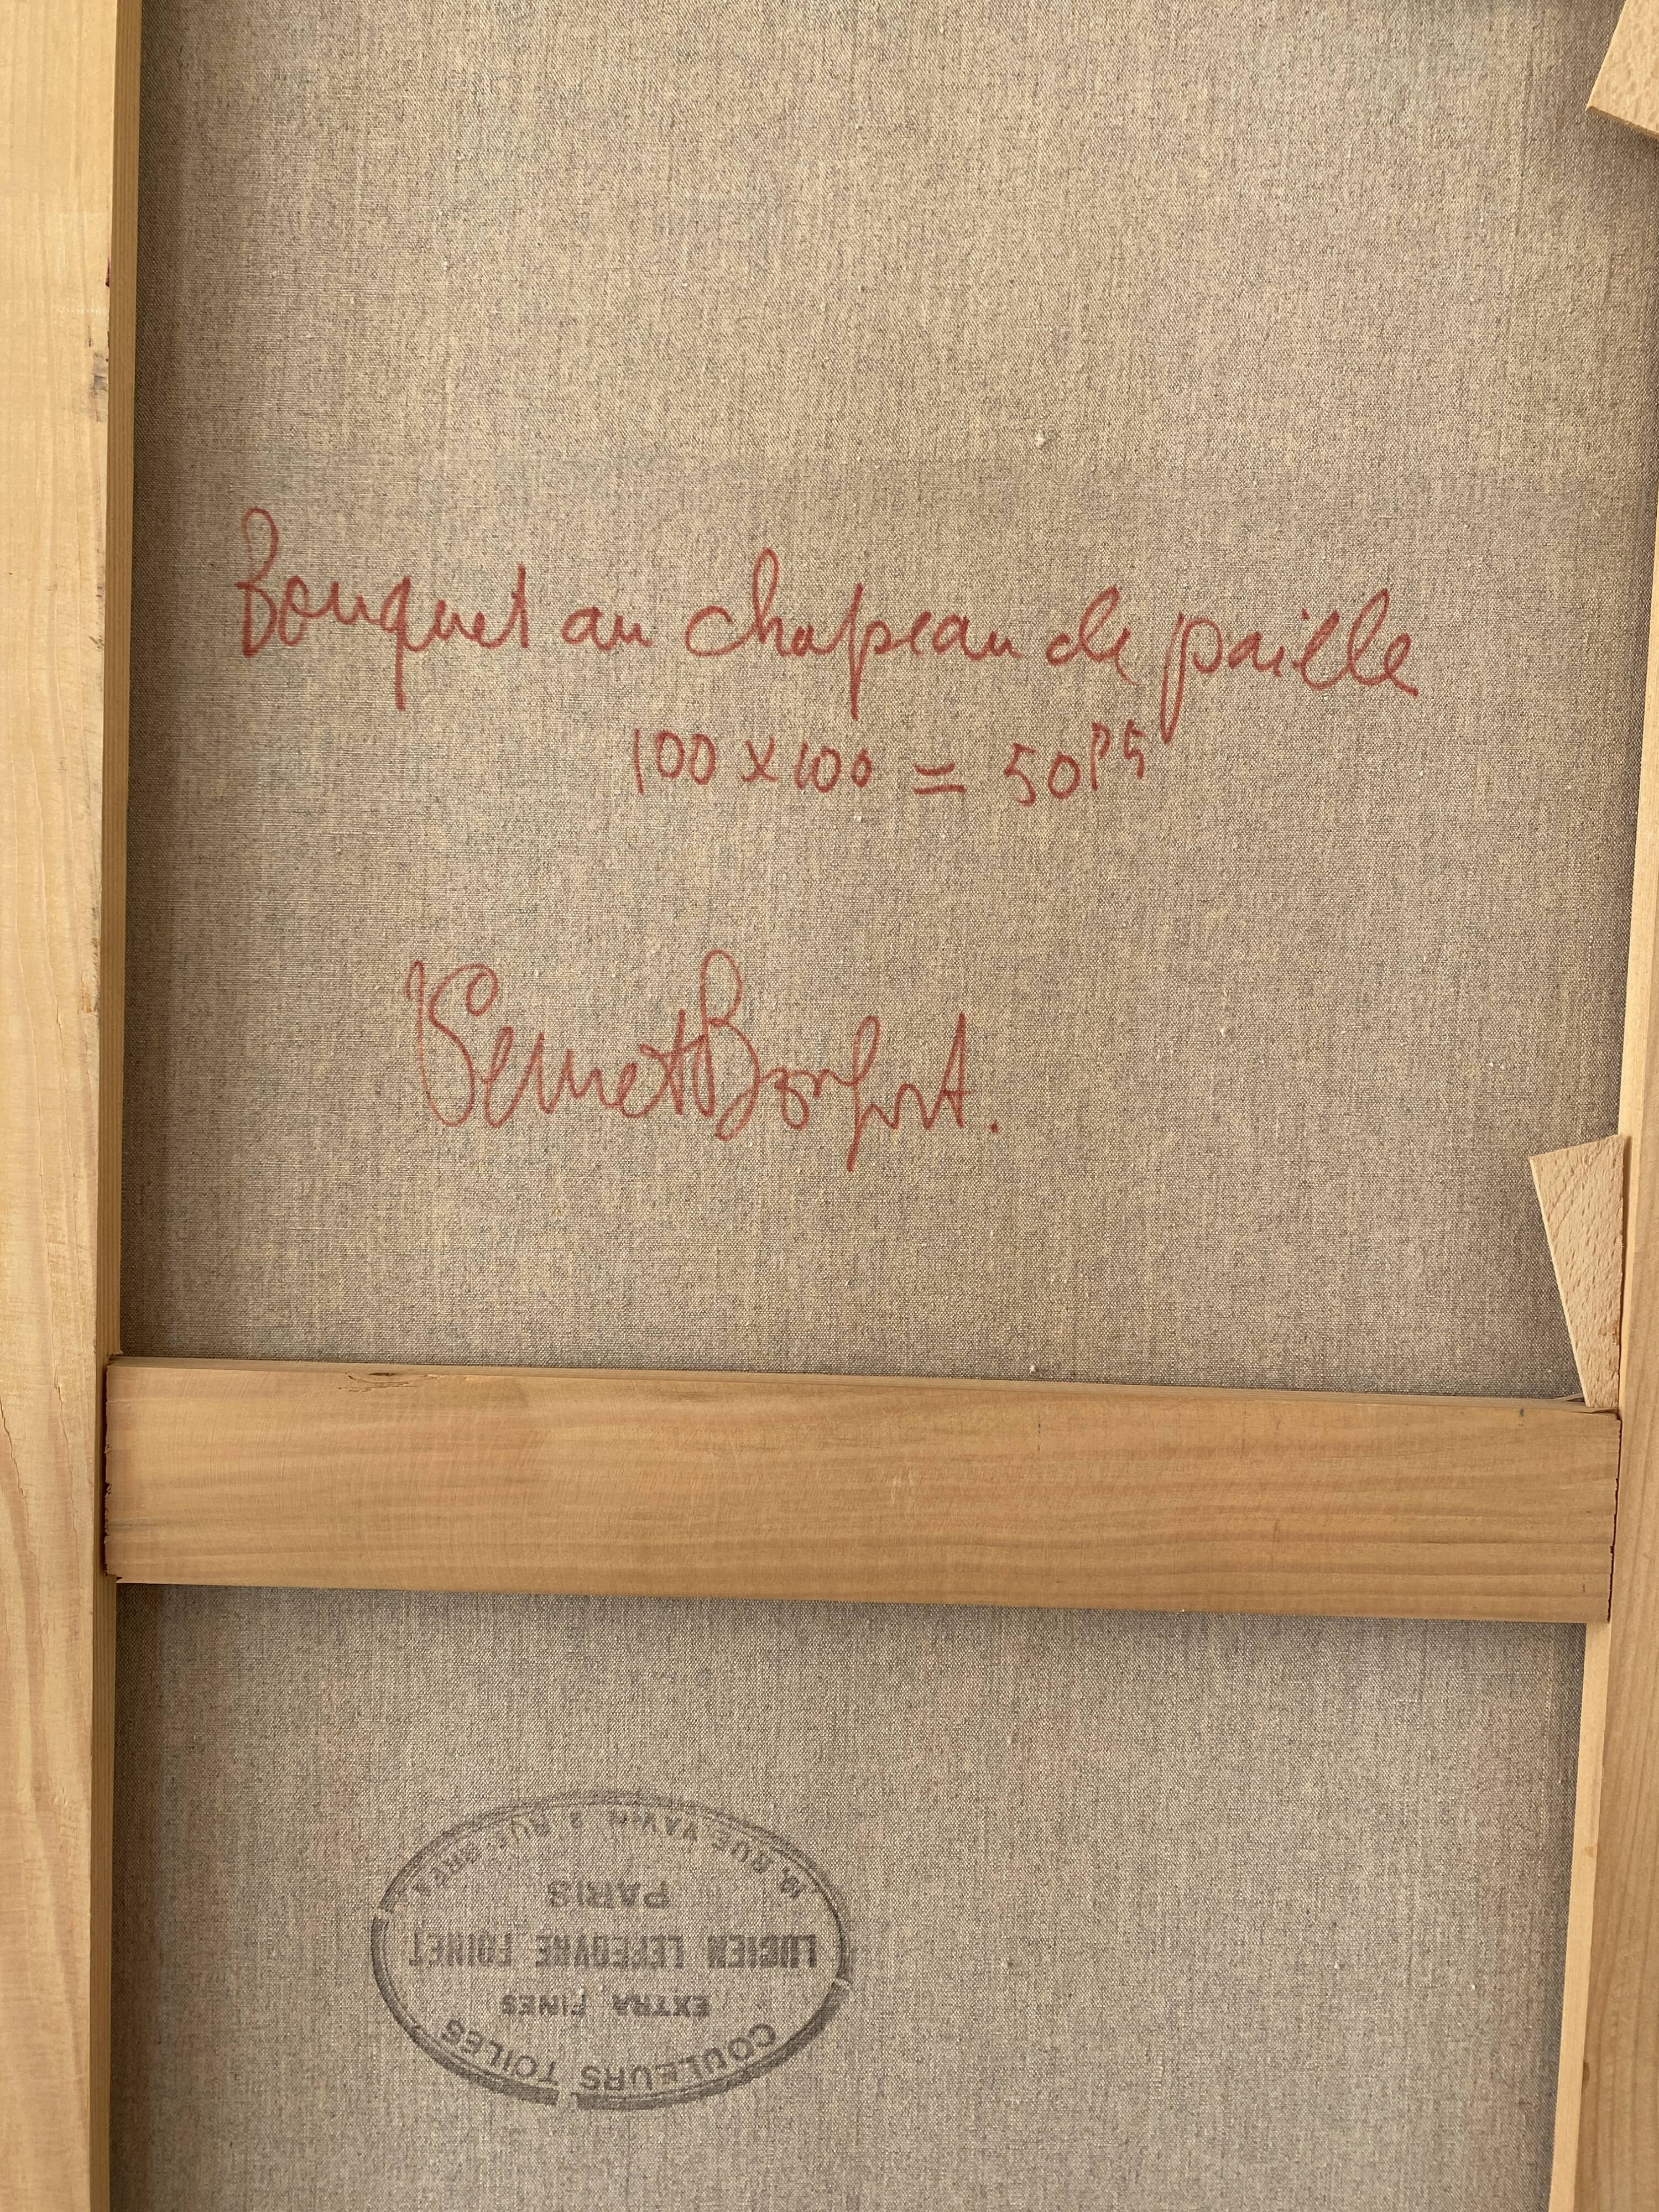 Bouquet au chapeau de paille
100 x 100 = 50 Ps
Vernet Bonfort.
COULEURS TOILES
EXTRA FINES
LUCIEN LEFEBVRE FOINET
PARIS
19, RUE VAVIN 2 RUE BREA